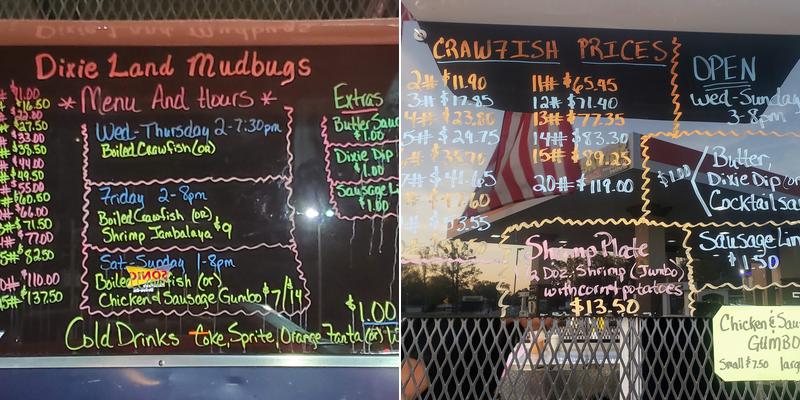 Dixie Land Mudbugs
* Menu And Hours *
$11.00
$16.50
$22.00
$27.50
$33.00
$38.50
$44.00
$49.50
$55.00
$60.50
$66.00
$71.50
$77.00
5# $82.50
0# $110.00
5# $137.50
Wed-Thursday 2-7:30pm
Boiled Crawfish (or)
Friday 2-8pm
Boiled Crawfish (or)
Shrimp Jambalaya $9
Sat-Sunday 1-8pm
Boiled fish (or)
Chicken & Sausage Gumbo $7/14
SONIC
Extras
Butter Sauc
$1.00
Dixie Dip
$1.00
Sausage Li
$1.00
$1.00
Cold Drinks Coke, Sprite, Orange Fanta (or)
CRAWFISH PRICES
2# $11.90
3# $17.85
4# $23.80
5# $29.75
$35.70
7# $41.65
$47.60
$53.55
11# $65.45
12# $71.40
13# $77.35
14# $83.30
15# $89.25
20# $119.00
OPEN
Wed-Sunday
3-8pm
$1.00
Butter,
Dixie Dip (or
Cocktail sau
Sausage Lin
$1.50
Shrimp Plate
2 Doz. Shrimp (Jumbo)
with corn & potatoes
$13.50
Chicken & Saus
GUMBO
Small $7.50 larg